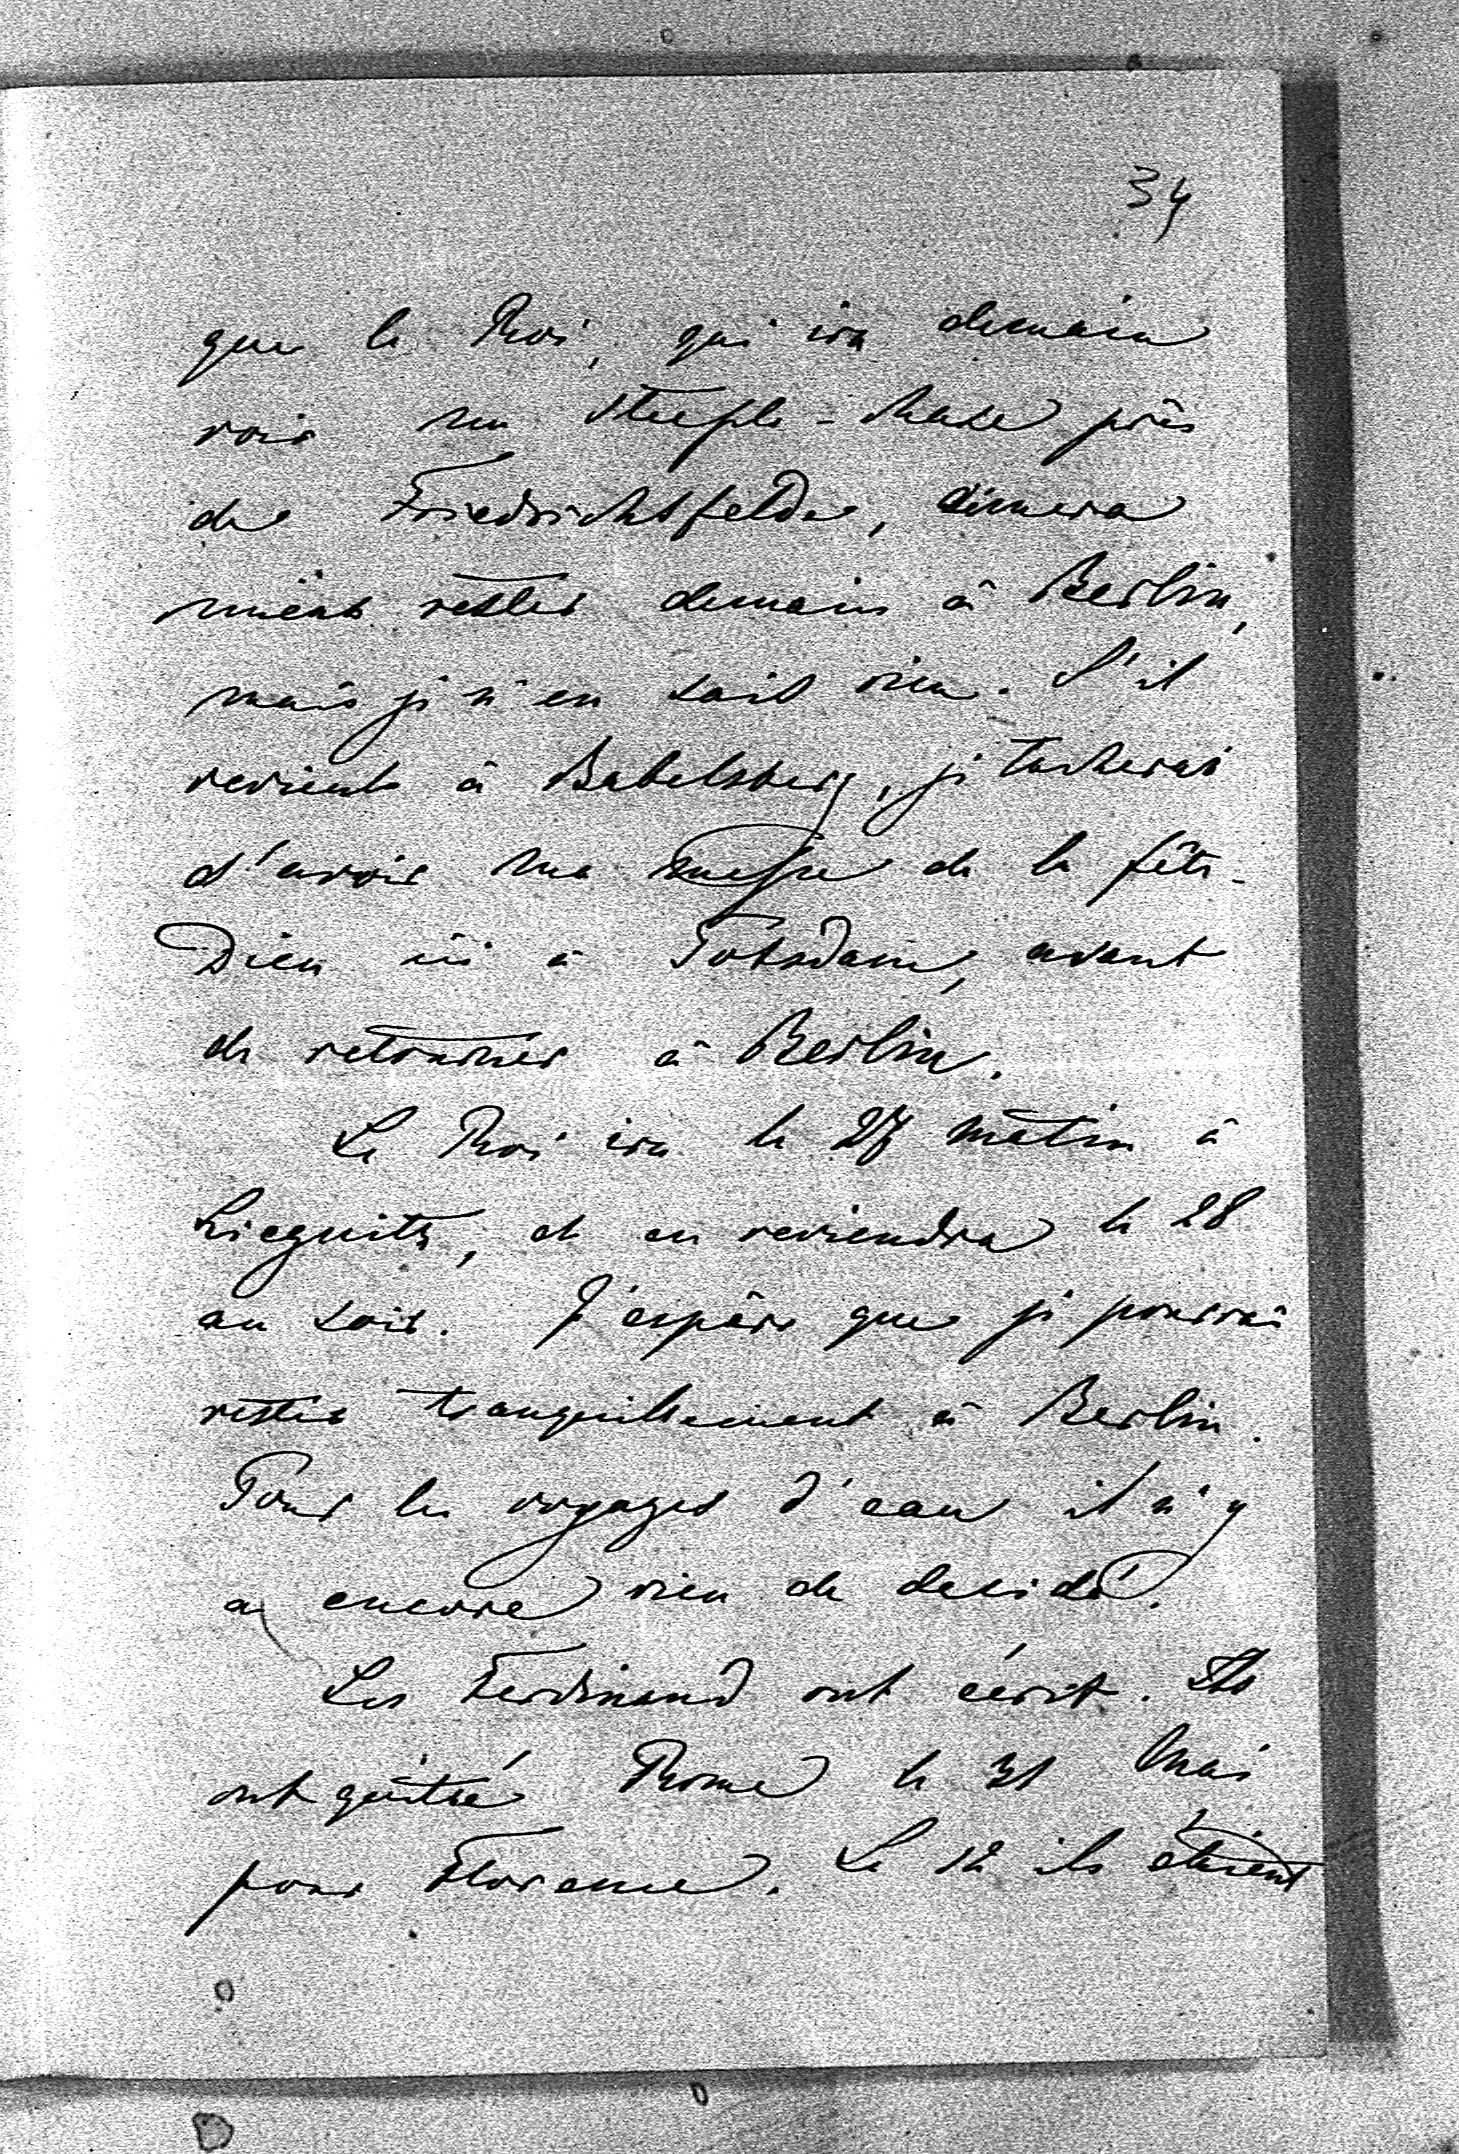 34
que le Roi, qui ira demain
voir un Steeple-chase près
de Friedrichsfelde, aimera
mieux rester demain à Berlin,
mais je n'en sais rien. S'il
revient à Babelsberg, je tacherai
d'avoir une messe de la fête-
Dieu ici à Potsdam, avant
de retourner à Berlin.
Le Roi ira le 27 matin à
Liegnitz, et en reviendra le 28
au soir. J'espère que je pourrai
rester tranquillement à Berlin.
Pour les voyages d'eau il n'y
a encore rien de decidé.
Les Ferdinand ont écrit. Ils
ont quitté Rome le 31 Mai
pour Florence. Le 12 ils étaient